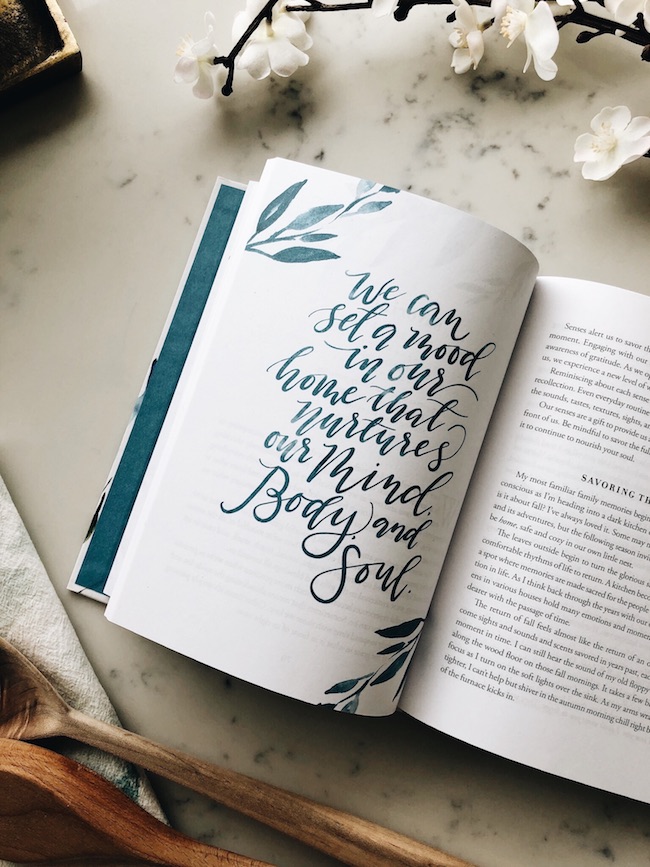 We can
set a mood
in our
home that
nurtures
our Mind,
Body, and
Soul.
Senses alert us to savor
moment. Engaging with our
awareness of gratitude. As we
us, we experience a new level of
Reminiscing about each
recollection. Even everyday routine
the sounds, tastes, textures, sights, and
Our senses are a gift to provide us
front of us. Be mindful to savor the
it to continue to nourish your soul.
SAVORING
My most familiar family memories begin
conscious as I'm heading into a dark kitchen
is it about fall? I've always loved it. Some may
and its adventures, but the following season
be home, safe and cozy in our own little nest.
The leaves outside begin to turn the glorious
comfortable rhythms of life to return. A kitchen
a spot where memories are made sacred for the people
tion in life. As I think back through the years with our
ens in various houses hold many emotions and
dearer with the passage of time.
The return of fall feels almost like the return of an
come sights and sounds and scents savored in years past,
moment in time. I can still hear the sound of my old floppy
along the wood floor on those fall mornings. It takes a few
focus as I turn on the soft lights over the sink. As my arms
tighter, I can't help but shiver in the autumn morning chill right
of the furnace kicks in.